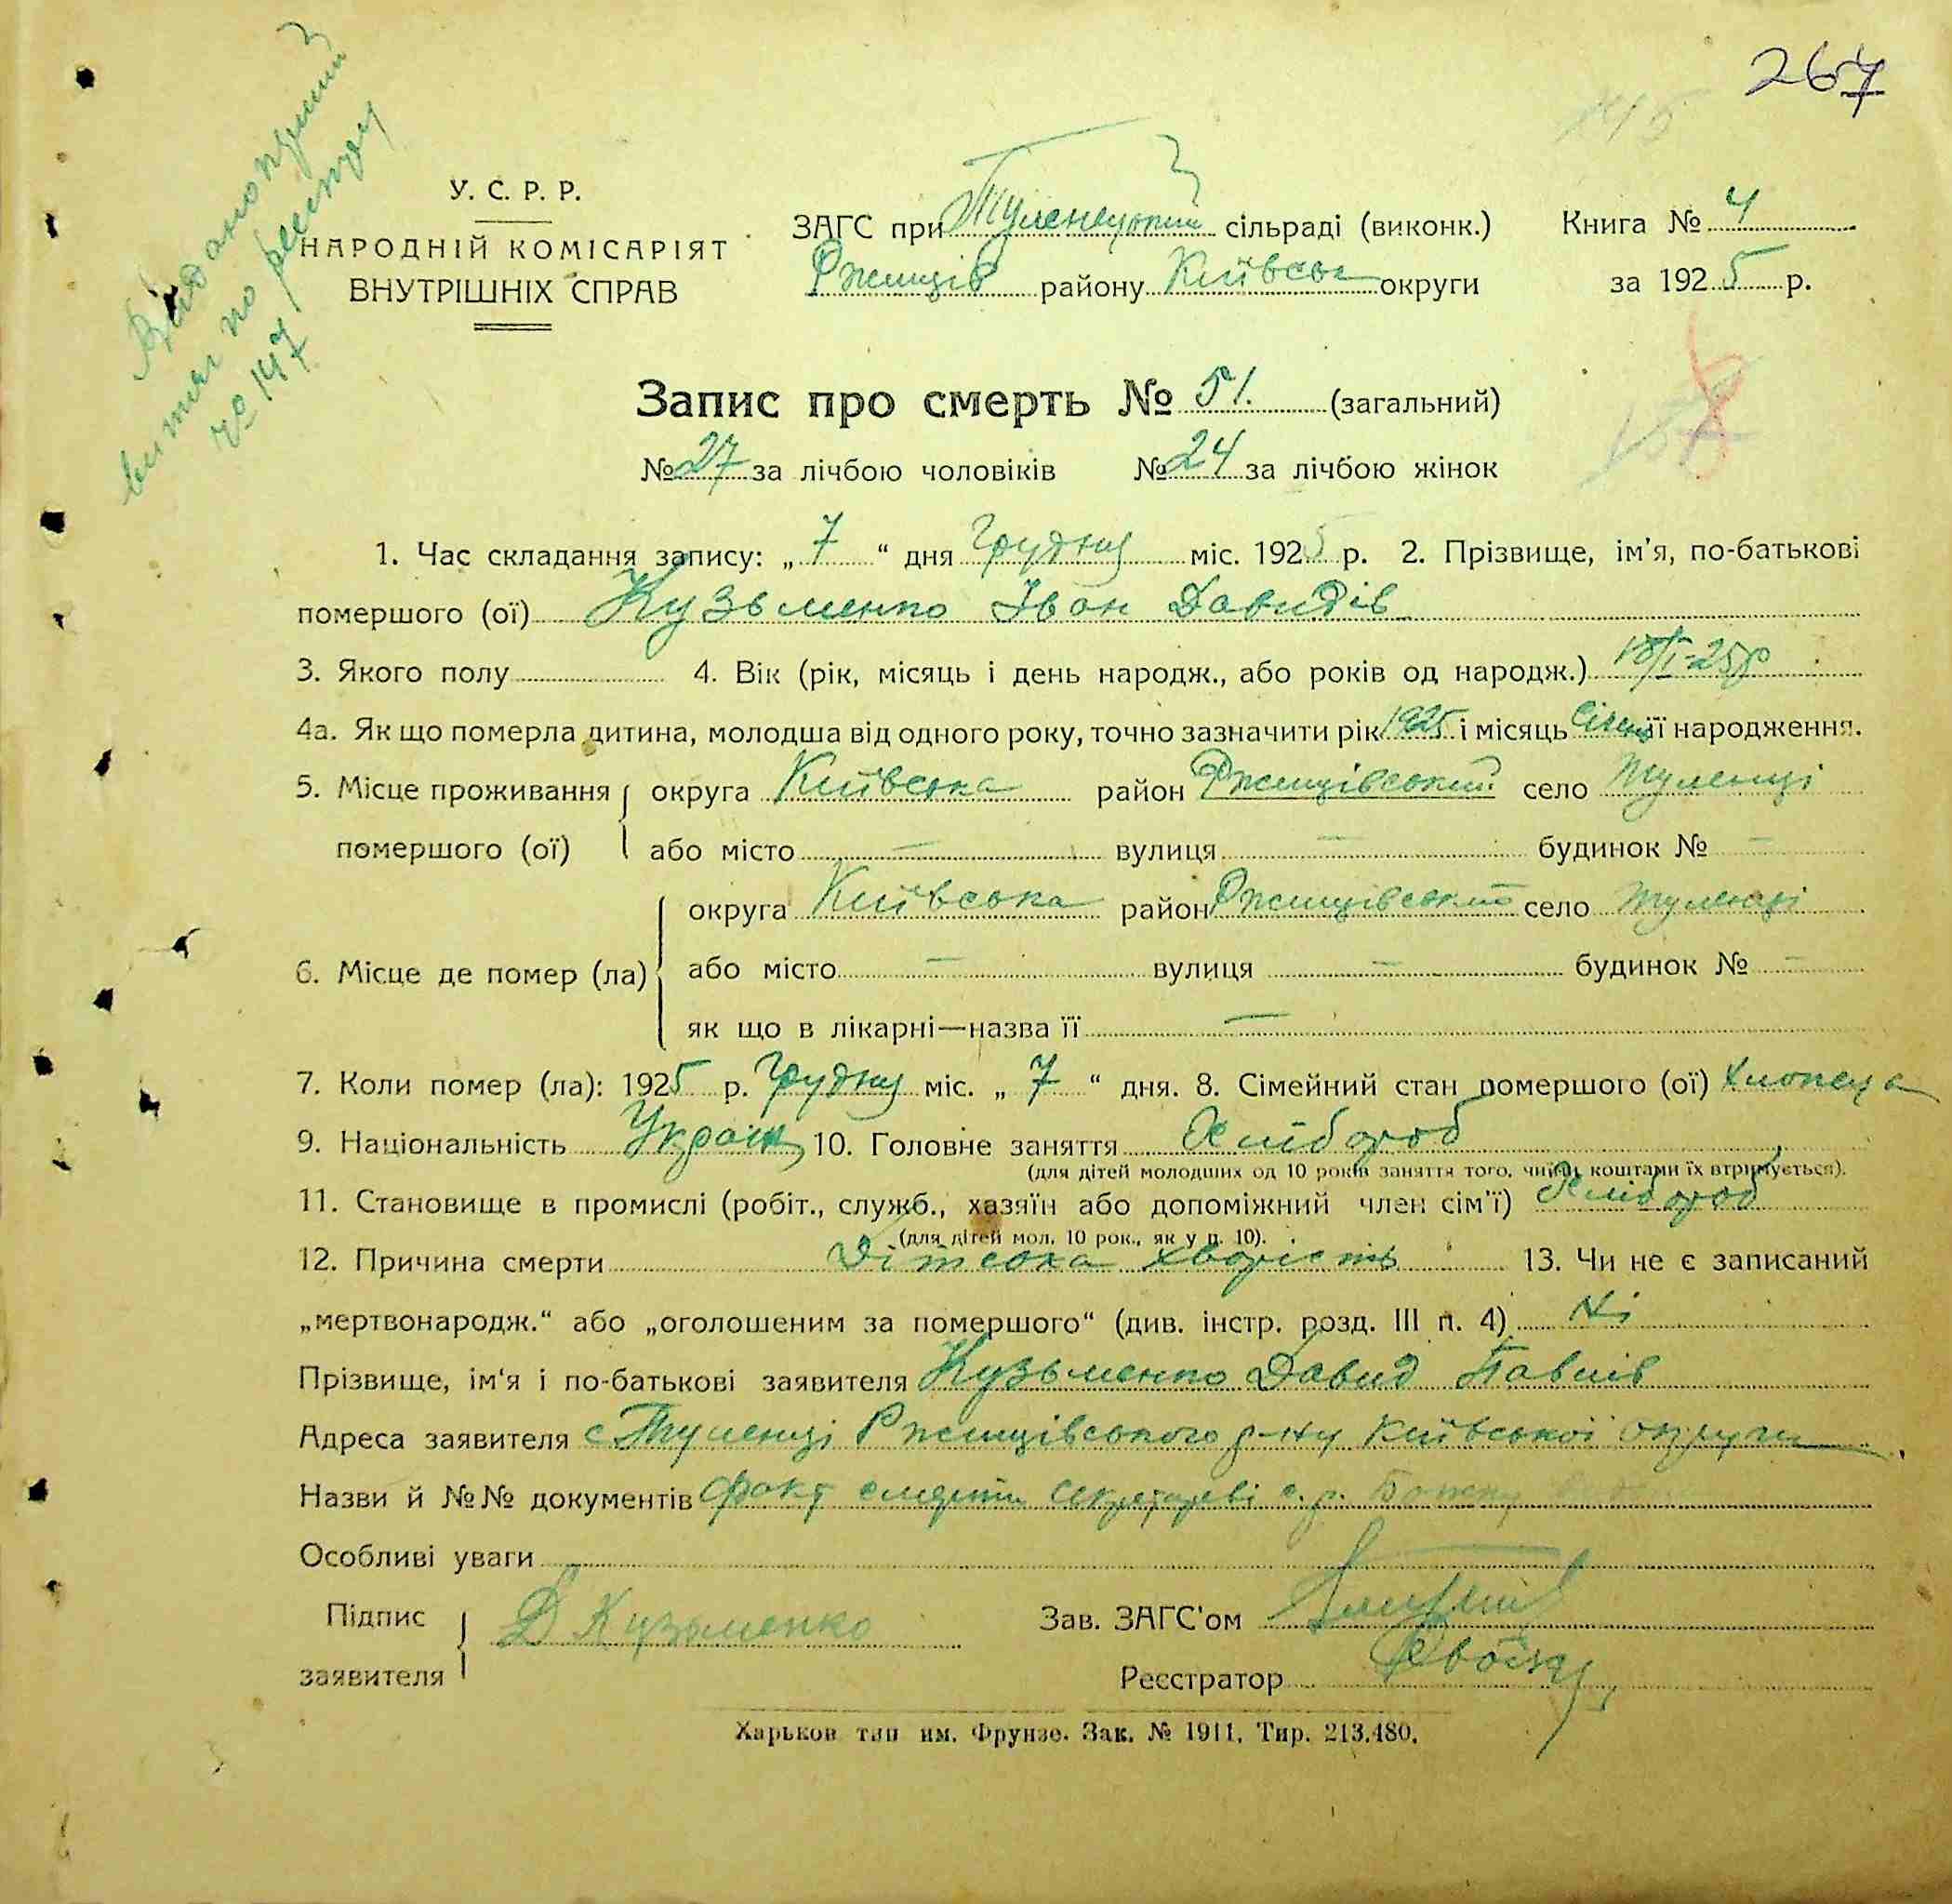 267
Видано
витяг по реєстру
№ 147
У. С. Р. Р.
НАРОДНІЙ КОМІСАРІЯТ
ВНУТРІШНІХ СПРАВ
ЗАГС при Туленецький сільраді (виконк.)
Ржищів району Київськ округи
Книга № 4
за 1925 р.
Запис про смерть № 51. (загальний)
№ 27 за лічбою чоловіків № 24 за лічбою жінок
1. Час складання запису: „ 7 “ дня Грудня міс. 1925 р. 2. Прізвище, ім'я, по-батькові
помершого (ої) Кузьменко Іван Давидів
3. Якого полу 4. Вік (рік, місяць і день народж., або років од народж.) 18/I-25р
4а. Як що померла дитина, молодша від одного року, точно зазначити рік 1925 і місяць Січень її народження.
5. Місце проживання округа Київська район Ржищівський село Туленці
помершого (ої) або місто — вулиця — будинок № —
округа Київська район Ржищівський село Туленці
6. Місце де помер (ла) або місто — вулиця — будинок № —
як що в лікарні—назва її —
7. Коли помер (ла): 1925 р. Грудня міс. „ 7 “ дня. 8. Сімейний стан помершого (ої) хлопець
9. Національність Україн 10. Головне заняття Хлібороб
(для дітей молодших од 10 років заняття того, чиїми коштами їх втримується).
11. Становище в промислі (робіт., служб., хазяїн або допоміжний член сім'ї) Хлібороб
(для дітей мол. 10 рок., як у п. 10).
12. Причина смерти Дітська хворість 13. Чи не є записаний
„мертвонародж.“ або „оголошеним за помершого“ (див. інстр. розд. III п. 4) Ні
Прізвище, ім'я і по-батькові заявителя Кузьменко Давид Павлів
Адреса заявителя с Туленці Ржищівського р-ну Київської округи
Назви й №№ документів факт смерти секретареві с. р.
Особливі уваги
Підпис
заявителя Д Кузьменко
Зав. ЗАГС'ом
Реєстратор
Харьков тип им. Фрунзе. Зак. № 1911. Тир. 213.480.